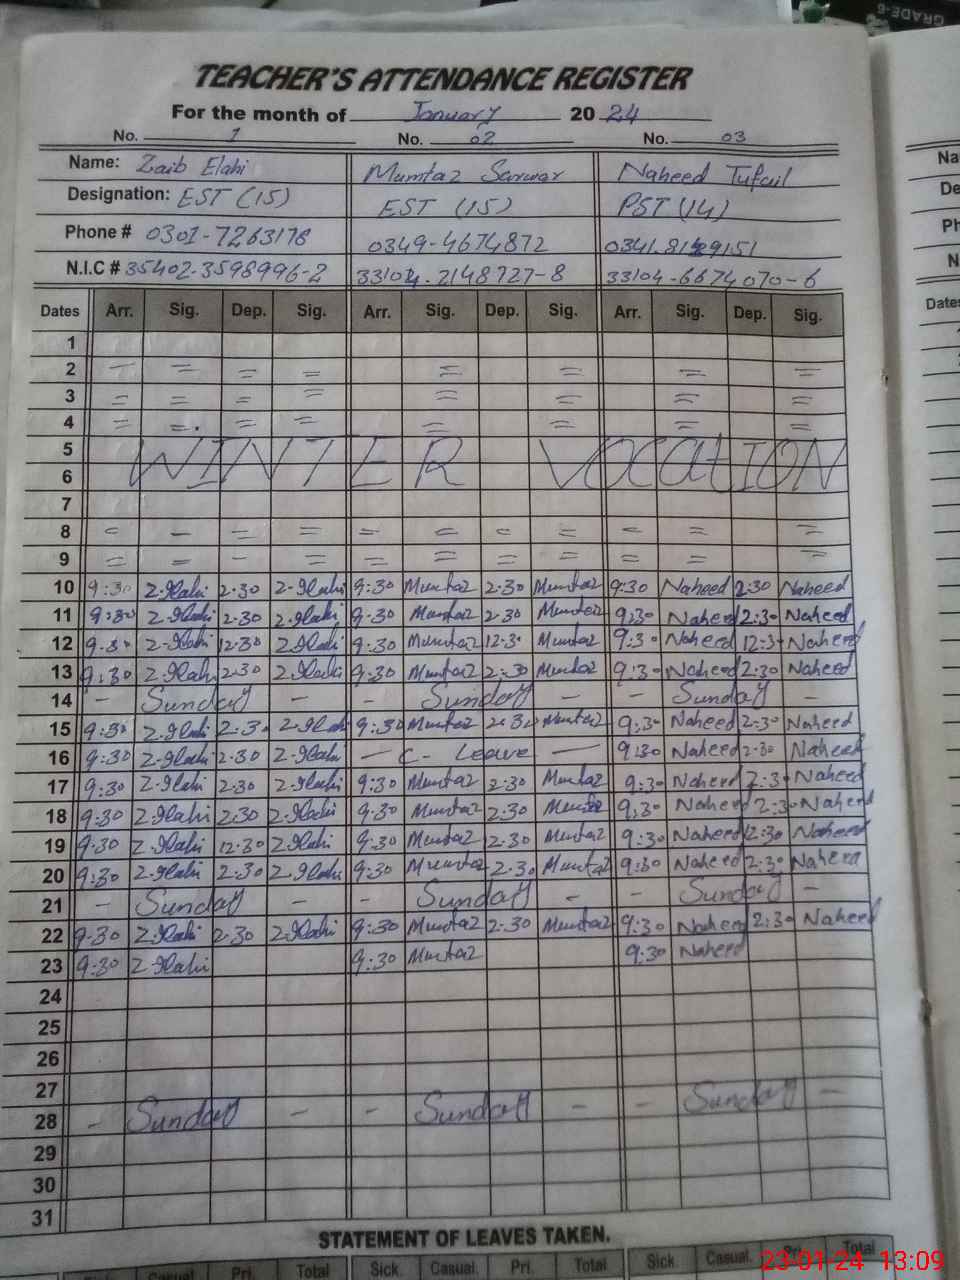 GRADE-6
TEACHER'S ATTENDANCE REGISTER
For the month of January 20 24
No. 1 No. 02 No. 03
Name: Zaib Elahi Mumtaz Sarwar Naheed Tufail
Designation: EST (15) EST (15) PST (14)
Phone # 0301-7263178 0349-4674872
N.I.C # 35402-3598996-2 33104-2148727-8 33104-6674070-6
Dates Arr. Sig. Dep. Sig. Arr. Sig. Dep. Sig. Arr. Sig. Dep. Sig.
1
2 = = = = = = = =
3 = = = = = = = =
4 = = = = = = = =
5 WINTER VOCATION
6
7
8 = = = = = = = = = = = =
9 = = = = = = = = = = = =
10 9:30 Z.Ilahi 2.30 Z.Ilahi 9:30 Mumtaz 2.30 Mumtaz 9:30 Naheed 2:30 Naheed
11 9:30 Z.Ilahi 2.30 Z.Ilahi 9:30 Mumtaz 2.30 Mumtaz 9:30 Naheed 2:30 Naheed
12 9:30 Z.Ilahi 12.30 Z.Ilahi 9:30 Mumtaz 12.30 Mumtaz 9:30 Naheed 12:30 Naheed
13 9:30 Z.Ilahi 2.30 Z.Ilahi 9:30 Mumtaz 2:30 Mumtaz 9:30 Naheed 2:30 Naheed
14 - Sunday - - Sunday - - Sunday -
15 9:30 Z.Ilahi 2.30 Z.Ilahi 9:30 Mumtaz 2.30 Mumtaz 9:30 Naheed 2:30 Naheed
16 9:30 Z.Ilahi 2.30 Z.Ilahi — C- Leave — 9:30 Naheed 2:30 Naheed
17 9:30 Z.Ilahi 2.30 Z.Ilahi 9:30 Mumtaz 2.30 Mumtaz 9:30 Naheed 2:30 Naheed
18 9:30 Z.Ilahi 2.30 Z.Ilahi 9:30 Mumtaz 2.30 Mumtaz 9:30 Naheed 2:30 Naheed
19 9:30 Z.Ilahi 12.30 Z.Ilahi 9:30 Mumtaz 12.30 Mumtaz 9:30 Naheed 12:30 Naheed
20 9:30 Z.Ilahi 2.30 Z.Ilahi 9:30 Mumtaz 2.30 Mumtaz 9:30 Naheed 2:30 Naheed
21 - Sunday - - Sunday - - Sunday -
22 9:30 Z.Ilahi 2.30 Z.Ilahi 9:30 Mumtaz 2.30 Mumtaz 9:30 Naheed 2:30 Naheed
23 9:30 Z.Ilahi 9:30 Mumtaz 9:30 Naheed
24
25
26
27
28 - Sunday - - Sunday - - Sunday -
29
30
31
STATEMENT OF LEAVES TAKEN.
Sick. Casual. Pri. Total Sick. Casual. Pri. Total Sick. Casual. Pri. Total
23-01-24 13:09